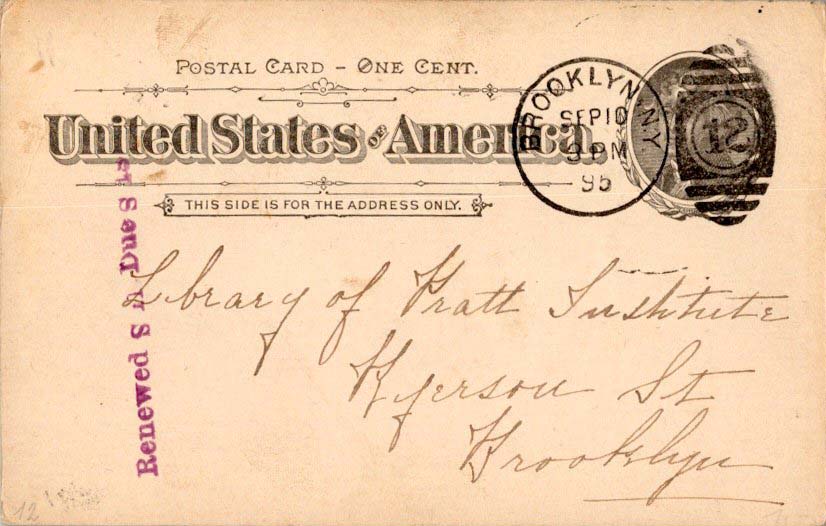 POSTAL CARD – ONE CENT.
United States OF America
THIS SIDE IS FOR THE ADDRESS ONLY.
BROOKLYN, N.Y.
SEP 10
3 PM
95
12
Renewed S Due S
Library of Pratt Institute
Ryerson St
Brooklyn
12